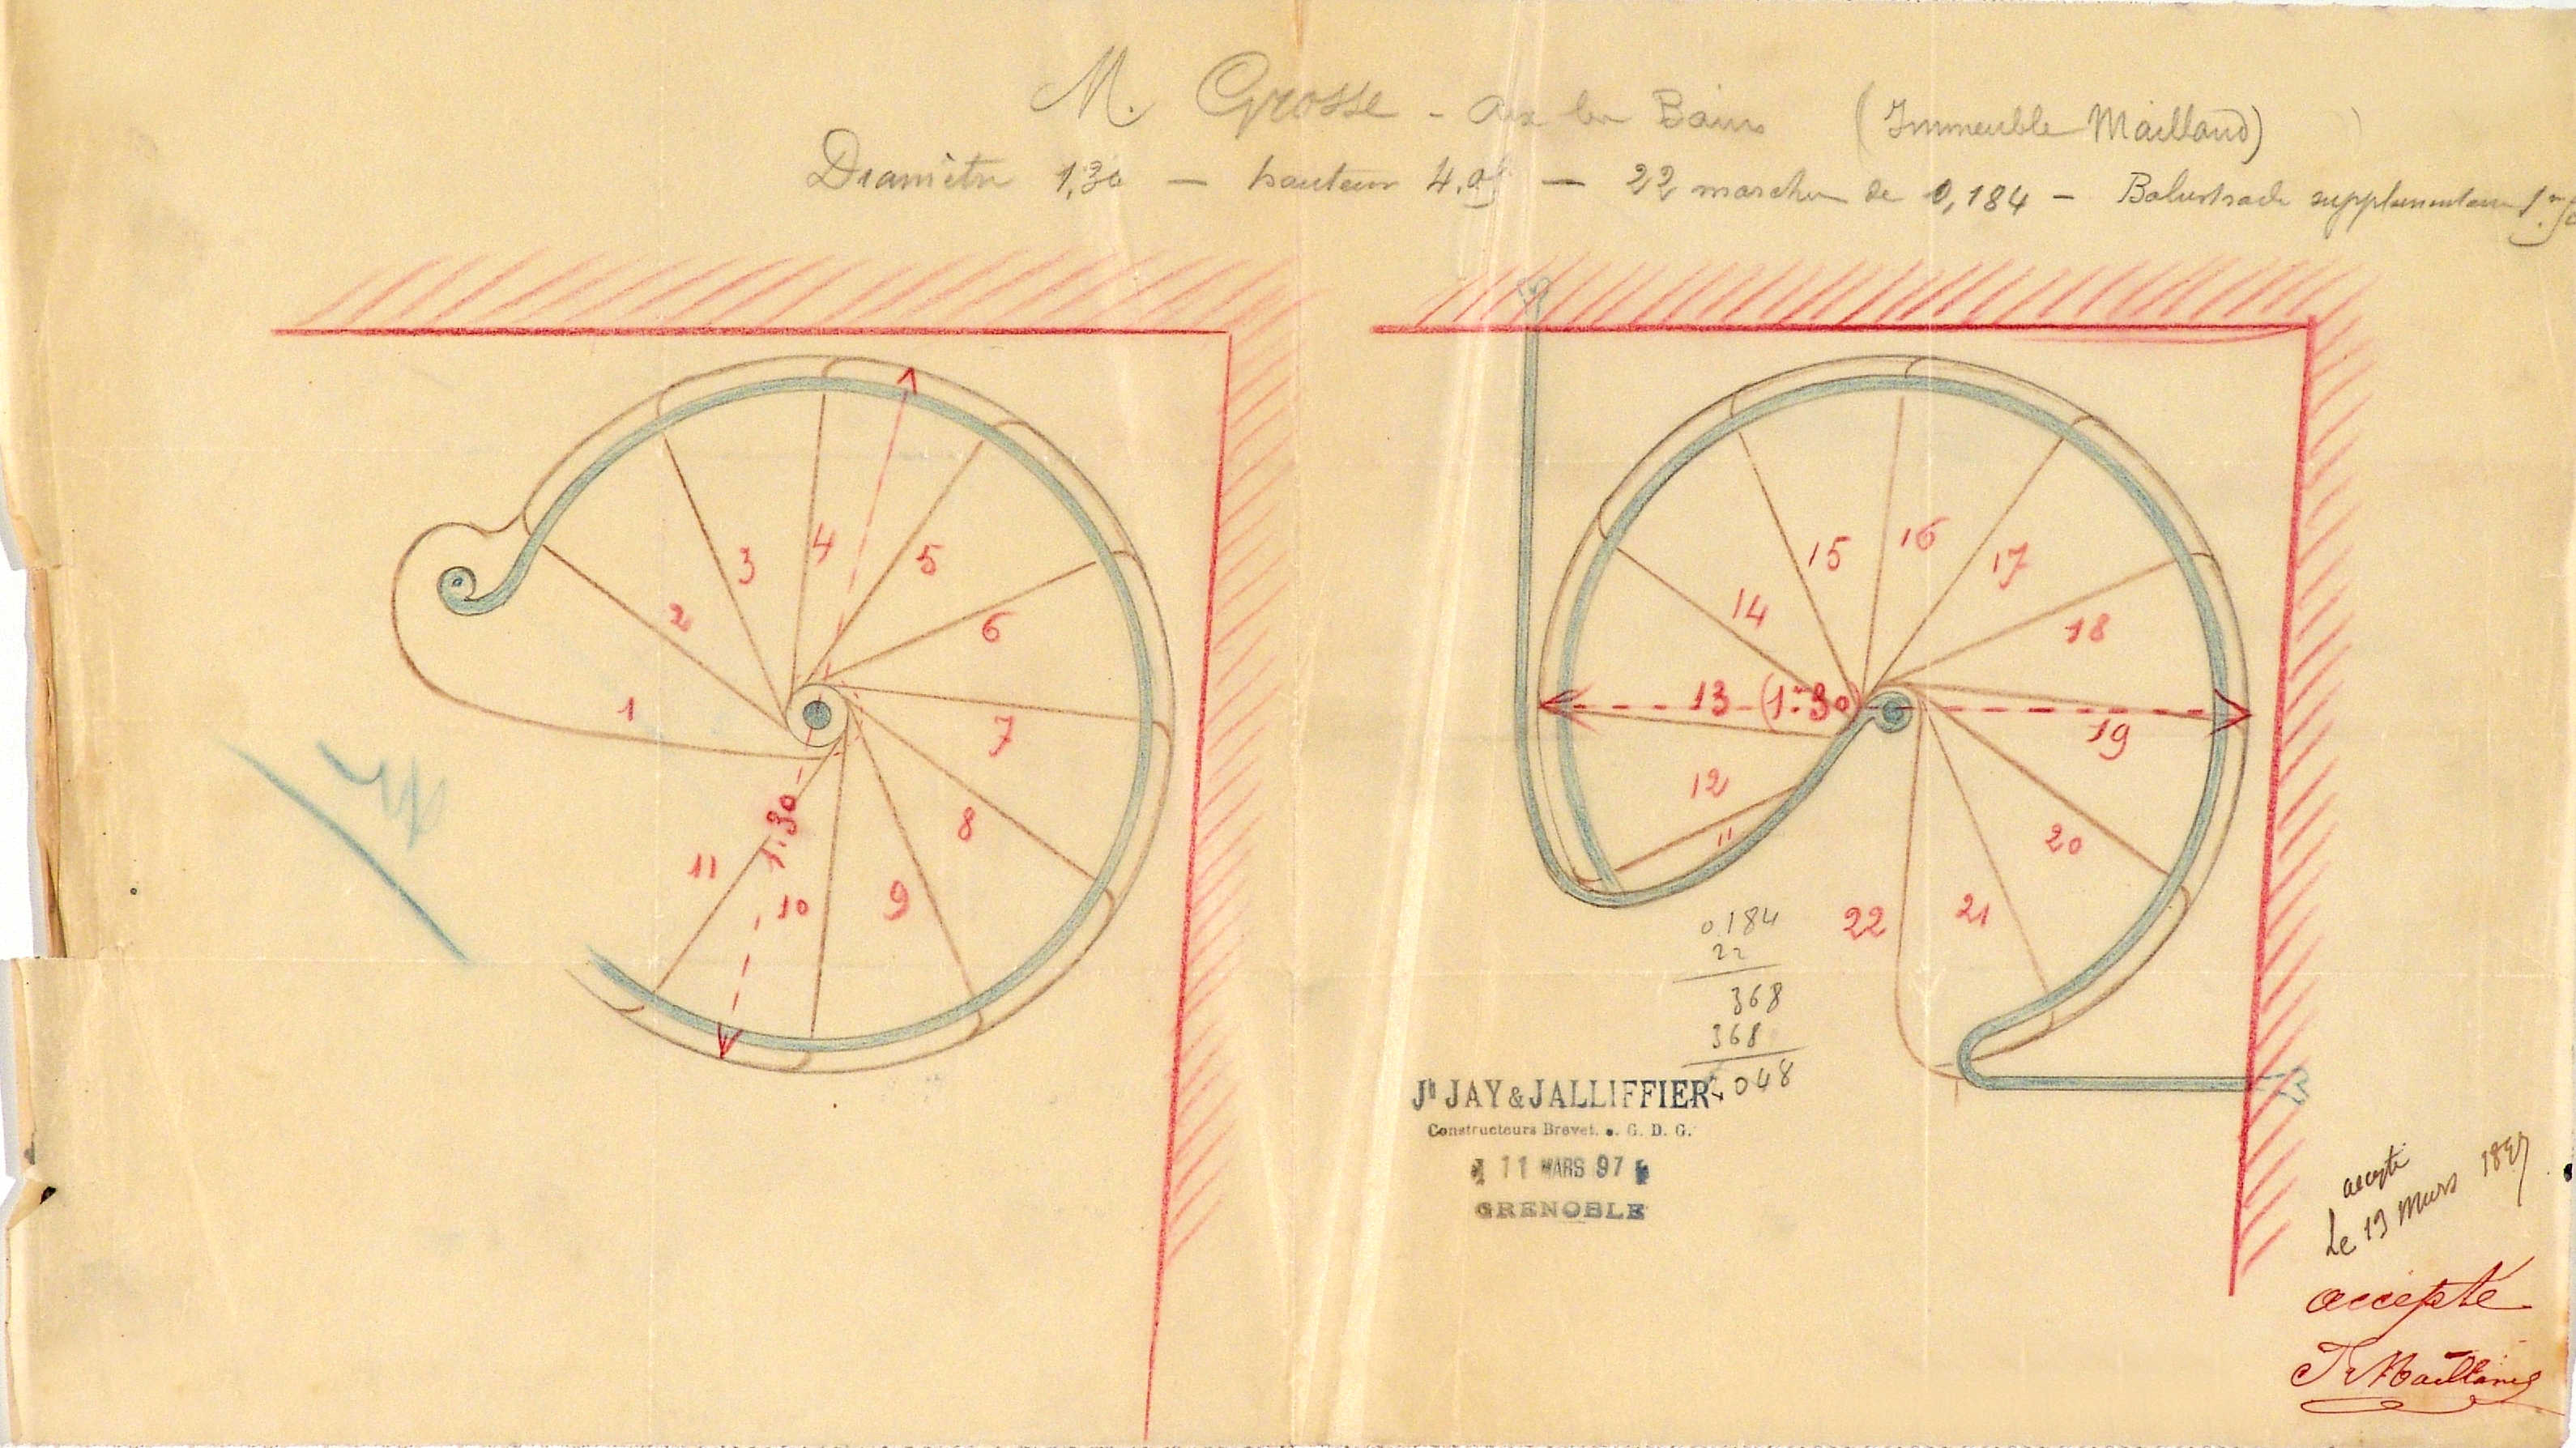 M. Grosse - Aix les Bains (Immeuble Mailland)
Diamètre 1,30 — hauteur 4.05 — 22 marches de 0,184 — Balustrade supplémentaire
1
2
3
4
5
6
7
8
9
10
11
1.30
11
12
13 (1m30)
14
15
16
17
18
19
20
21
22
0.184
22
368
368
4048
Jh JAY & JALLIFFIER
Constructeurs Brevet. s. G. D. G.
11 MARS 97
GRENOBLE
accepté
Le 13 Mars 1897
accepté
Mailland